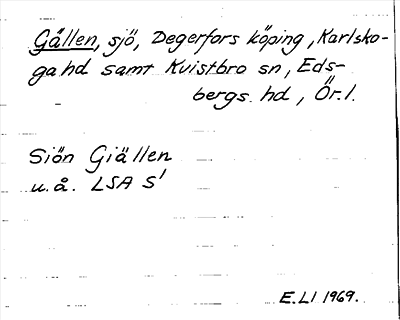 Gällen, sjö, Degerfors köping, Karlsko-
ga hd samt Kvistbro sn, Eds-
bergs hd, Ör. l.
Siön Giällen
u.å. LSA S'
E.LI 1969.